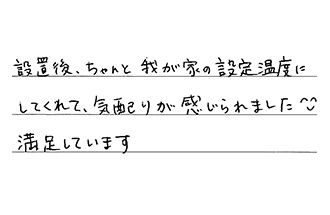 設置後、ちゃんと我が家の設定温度に
してくれて、気配りが感じられました
満足しています